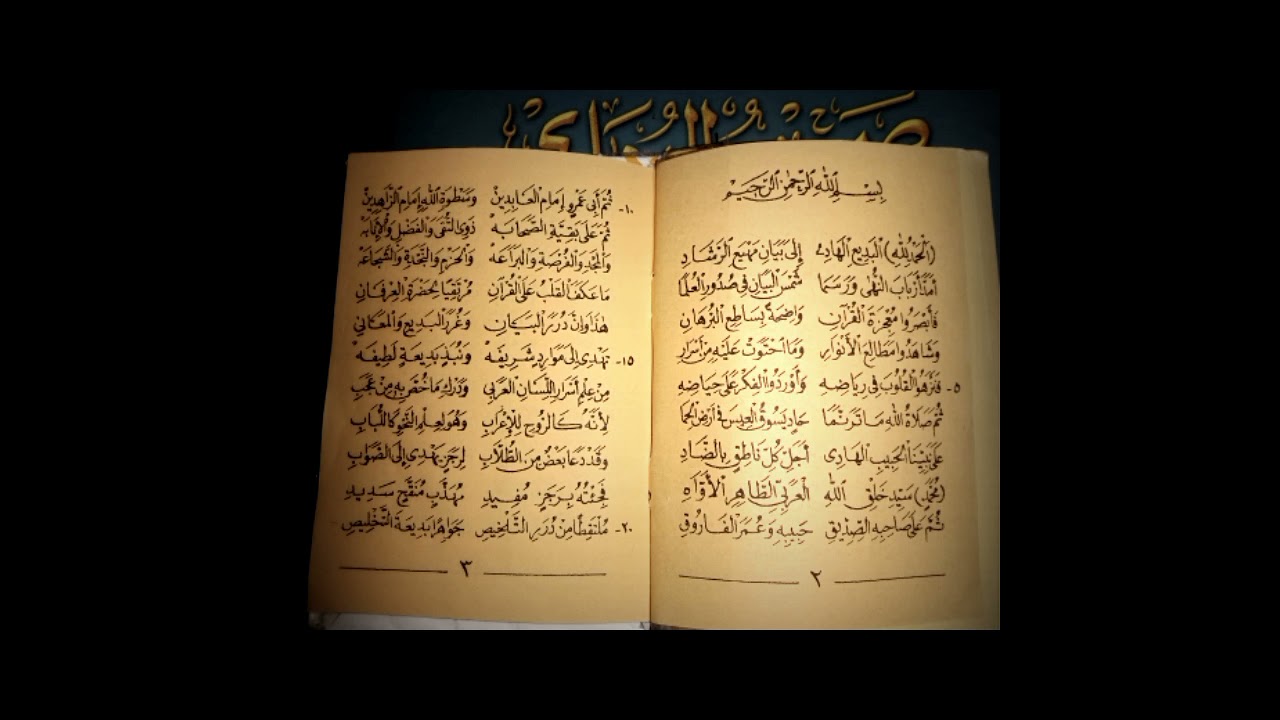 بِسْمِ اللهِ الرَّحْمٰنِ الرَّحِيمْ
(اَلْحَمْدُ لِلّٰهِ) الْبَدِيعِ الْهَادِي إِلَى بَيَانِ مَهْيَعِ الرَّشَادِ
أَمَدَّ أَرْبَابَ النُّهَى وَرَسَمَا شَمْسَ الْبَيَانِ فِي صُدُورِ الْعُلَمَا
فَأَبْصَرُوا مُعْجِزَةَ الْقُرْآنِ وَاضِحَةً بِسَاطِعِ الْبُرْهَانِ
وَشَاهَدُوا مَطَالِعَ الْأَنْوَارِ وَمَا احْتَوَتْ عَلَيْهِ مِنْ أَسْرَارِ
٥- فَنَزَّهُوا الْقُلُوبَ فِي رِيَاضِهِ وَأَوْرَدُوا الْفِكْرَ عَلَى حِيَاضِهِ
ثُمَّ صَلَاةُ اللهِ مَا تَرَنَّمَا حَادٍ يَسُوقُ الْعِيسَ فِي أَرْضِ الْحِمَا
عَلَى نَبِيِّنَا الْحَبِيبِ الْهَادِي أَجَلِّ كُلِّ نَاطِقٍ بِالضَّادِ
(مُحَمَّدٍ) سَيِّدِ خَلْقِ اللهِ الْعَرَبِيِّ الطَّاهِرِ الْأَوَّاهِ
ثُمَّ عَلَى صَاحِبِهِ الصِّدِّيقِ حَبِيبِهِ وَعُمَرَ الْفَارُوقِ
٢
١٠- ثُمَّ أَبِي عَمْرٍو إِمَامِ الْعَابِدِينْ وَسَطْوَةِ اللهِ إِمَامِ الزَّاهِدِينْ
ثُمَّ عَلَى بَقِيَّةِ الصَّحَابَهْ ذَوِي التُّقَى وَالْفَضْلِ وَالْإِنَابَهْ
وَالْمَجْدِ وَالْفُرْصَةِ وَالْبَرَاعَهْ وَالْحَزْمِ وَالنَّجْدَةِ وَالشَّجَاعَهْ
مَا عَكَفَ الْقَلْبُ عَلَى الْقُرْآنِ مُرْتَقِيًا لِحَضْرَةِ الْعِرْفَانِ
هٰذَا وَإِنَّ دُرَرَ الْبَيَانِ وَغُرَرَ الْبَدِيعِ وَالْمَعَانِي
١٥- تَهْدِي إِلَى مَوَارِدٍ شَرِيفَهْ وَنُبَذٍ بَدِيعَةٍ لَطِيفَهْ
مِنْ عِلْمِ أَسْرَارِ اللِّسَانِ الْعَرَبِي وَدَرْكِ مَا خُصَّ بِهِ مِنْ عَجَبِ
لِأَنَّهُ كَالرُّوحِ لِلْإِعْرَابِ وَهُوَ لِعِلْمِ النَّحْوِ كَاللُّبَابِ
وَقَدْ دَعَا بَعْضٌ مِنَ الطُّلَّابِ لِرَجَزٍ يَهْدِي إِلَى الصَّوَابِ
فَجِئْتُهُ بِرَجَزٍ مُفِيدِ مُهَذَّبٍ مُنَقَّحٍ سَدِيدِ
٢٠- مُلْتَقِطًا مِنْ دُرَرِ التَّلْخِيصِ جَوَاهِرًا بَدِيعَةَ التَّخْلِيصِ
٣